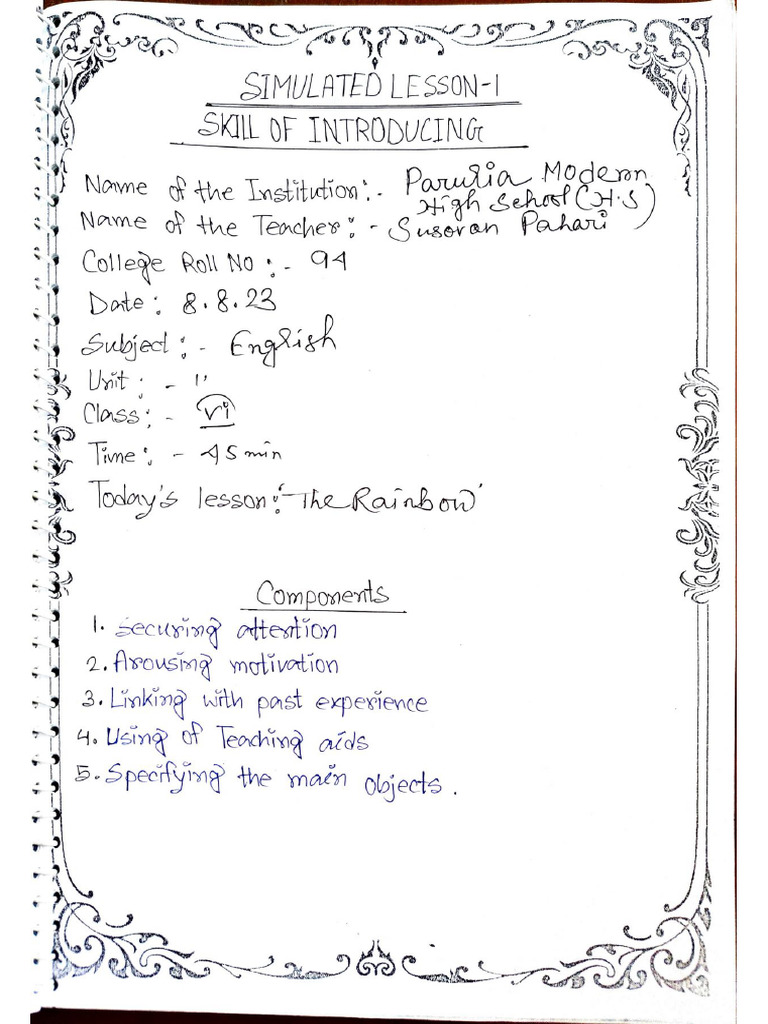 SIMULATED LESSON-1
SKILL OF INTRODUCING
Name of the Institution:- Parulia Modern
High School (H.S)
Name of the Teacher:- Susovan Pahari
College Roll No:- 94
Date: 8.8.23
Subject:- English
Unit:- 11
Class:- VI
Time:- 45 min
Today's lesson:- 'The Rainbow'
Components
1. Securing attention
2. Arousing motivation
3. Linking with past experience
4. Using of Teaching aids
5. Specifying the main objects.